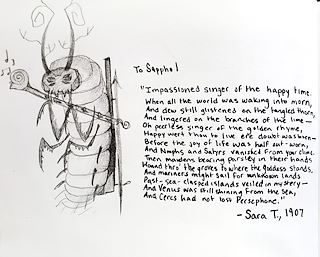 To Sappho I
"Impassioned singer of the happy time.
When all the world was waking into morn,
And dew still glistened on the tangled thorn,
And lingered on the branches of the lime —
Oh peerless singer of the golden rhyme,
Happy wert thou to live ere doubt was born —
Before the joy of life was half out-worn,
And Nymphs and Satyrs vanished from your clime.
Then maidens bearing parsley in their hands
Wound thro' the groves to where the goddess stands,
And mariners might sail for unknown lands
Past sea-clasped islands veiled in mystery —
And Venus was still shining from the sea,
And Ceres had not lost Persephone."
- Sara T., 1907